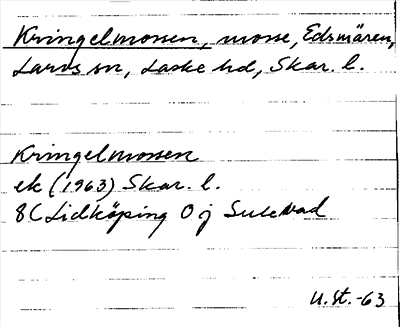 Kringelmossen, mosse, Edsmären,
Larvs sn, Laske hd, Skar. l.
Kringelmossen
ek (1963) Skar. l.
8C Lidköping 0j
U.St.-63